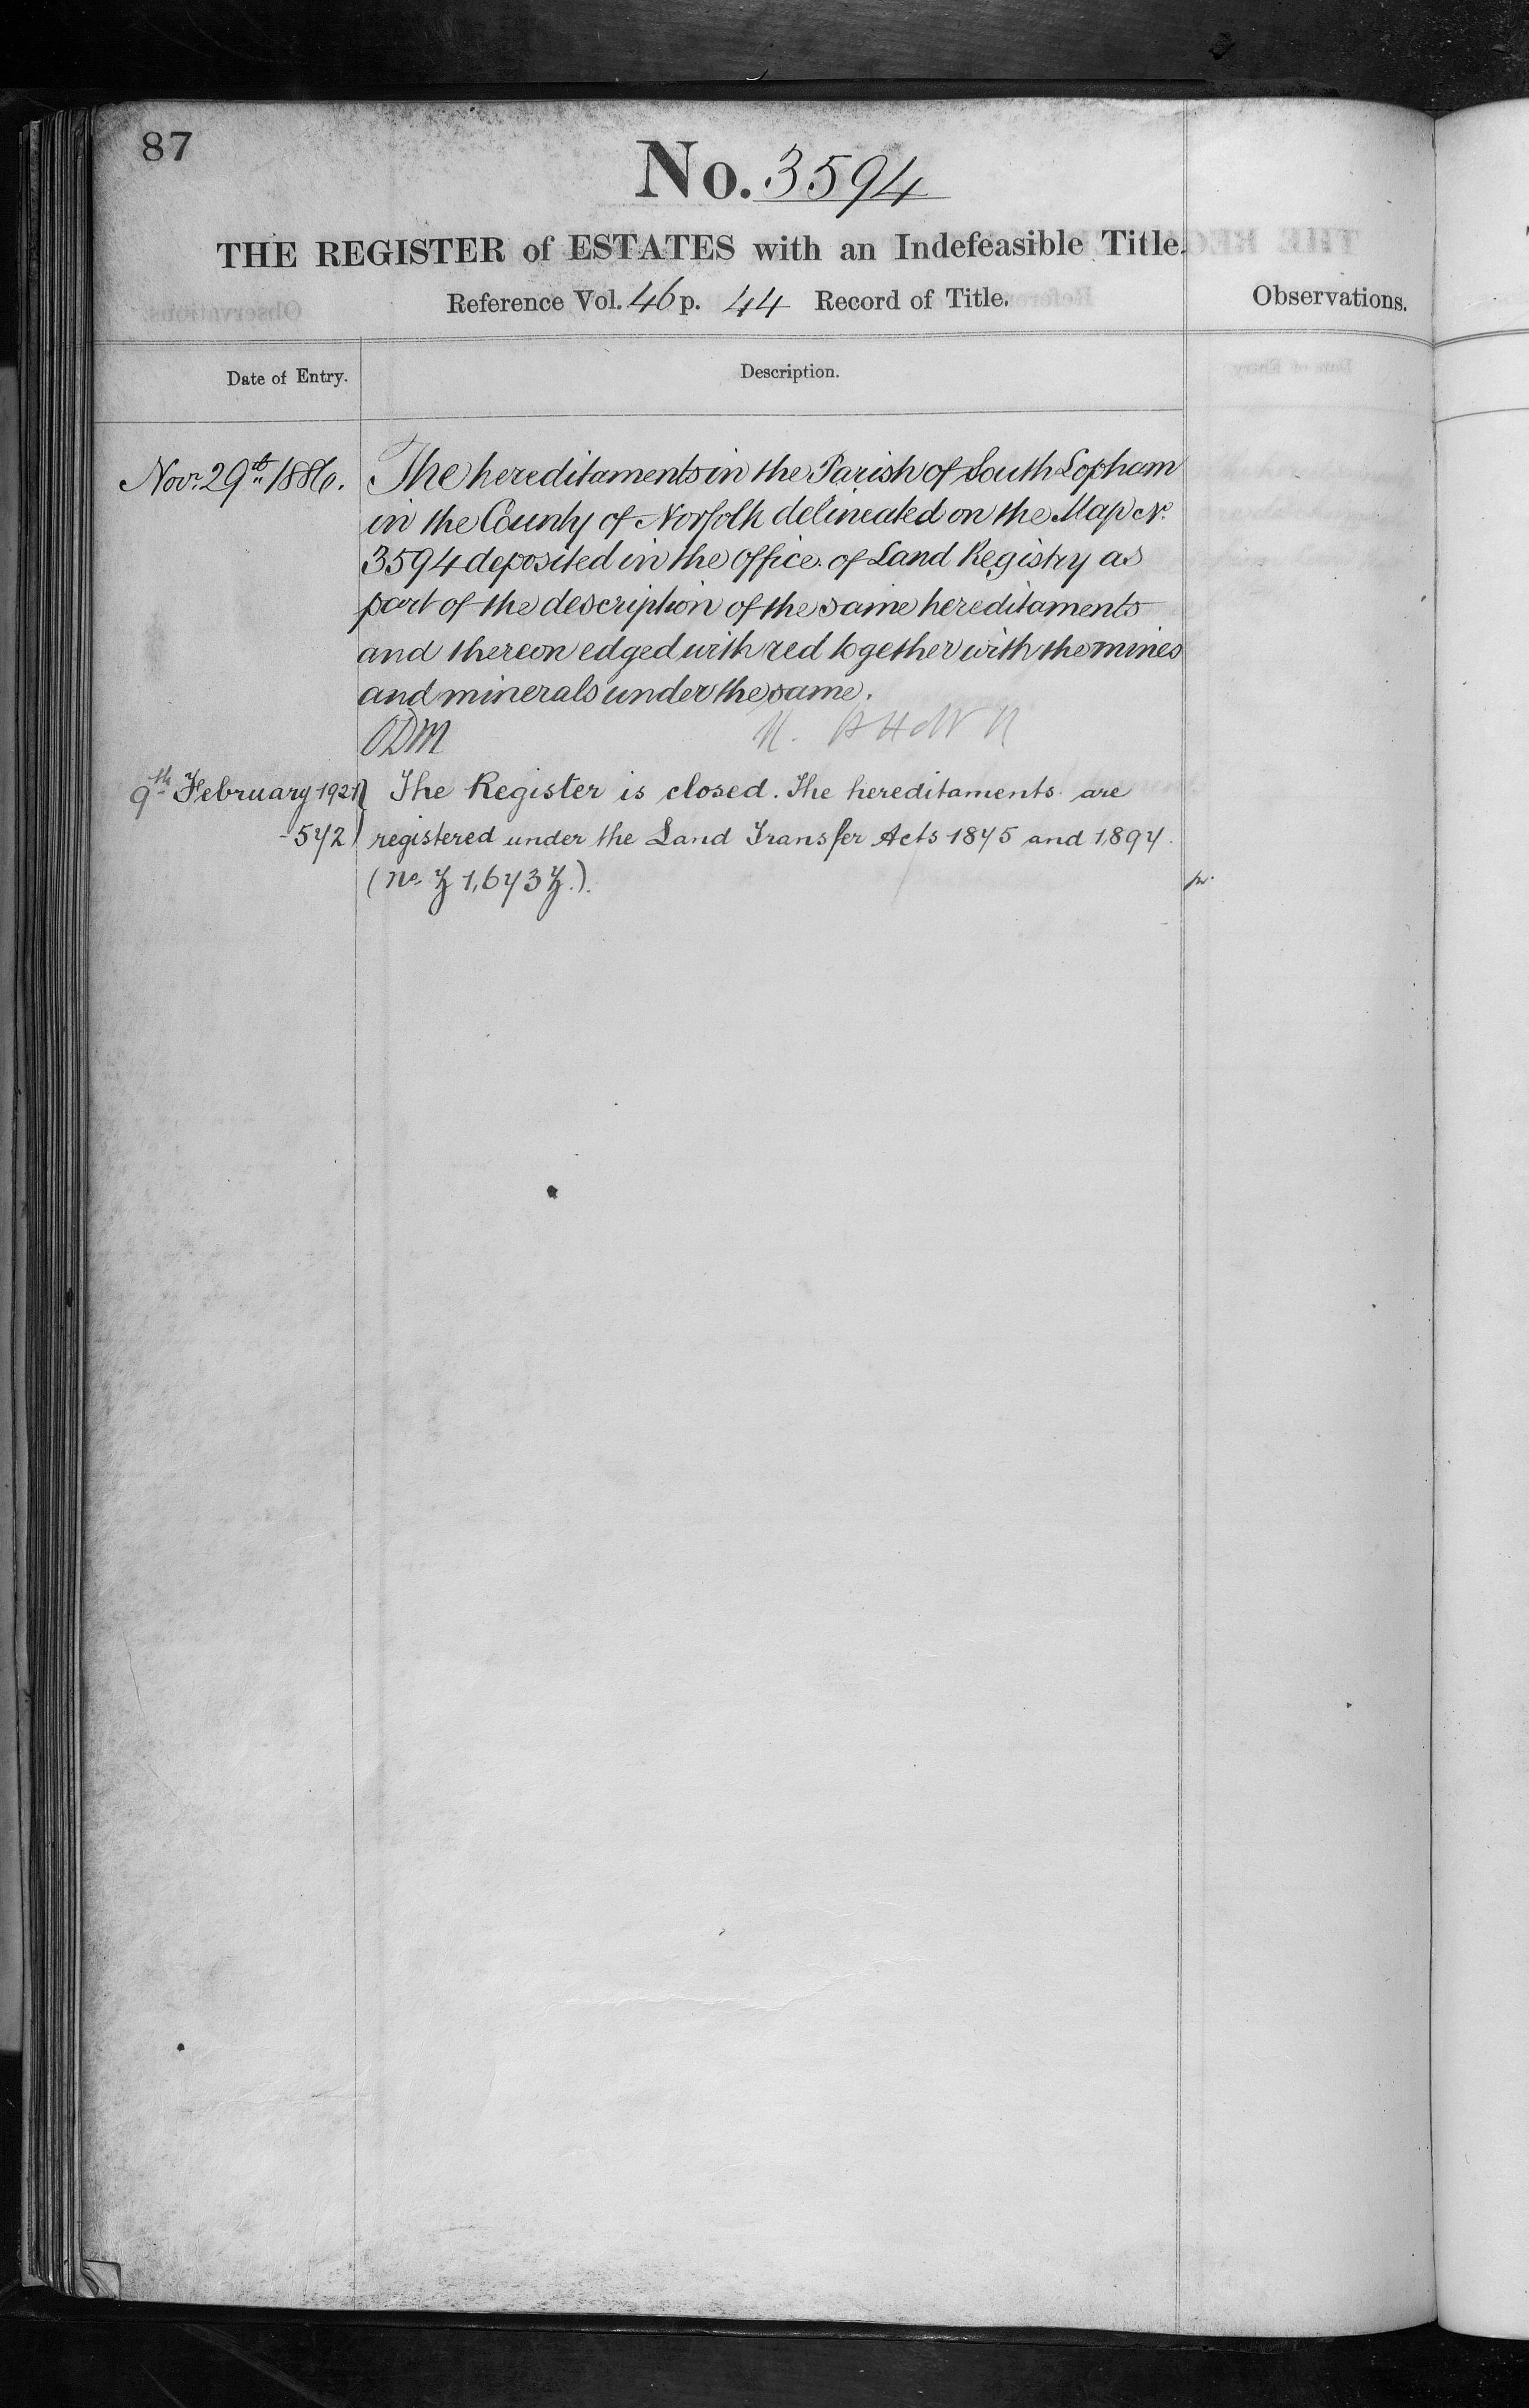 87
No. 3594
THE REGISTER of ESTATES with an Indefeasible Title.
Reference Vol. 46 p. 44 Record of Title.
Observations.
Date of Entry.
Description.
Novr. 29th 1886. The hereditaments in the Parish of South Lopham
in the County of Norfolk delineated on the Map No.
3594 deposited in the Office of Land Registry as
part of the description of the same hereditaments
and thereon edged with red together with the mines
and minerals under the same.
ODM
9th February 1921 The Register is closed. The hereditaments are
542 registered under the Land Transfer Acts 1875 and 1897.
(No. Z 1,673 Z.).